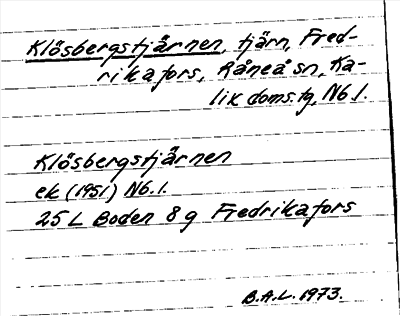 Klösbergstjärnen, tjärn, Fred-
rikafors, Råneå sn, Ka-
lix doms.tg, Nb.l.
Klösbergstjärnen
ek (1951) Nb.l.
25 L Boden 8g Fredrikafors
B.A.L. 1973.